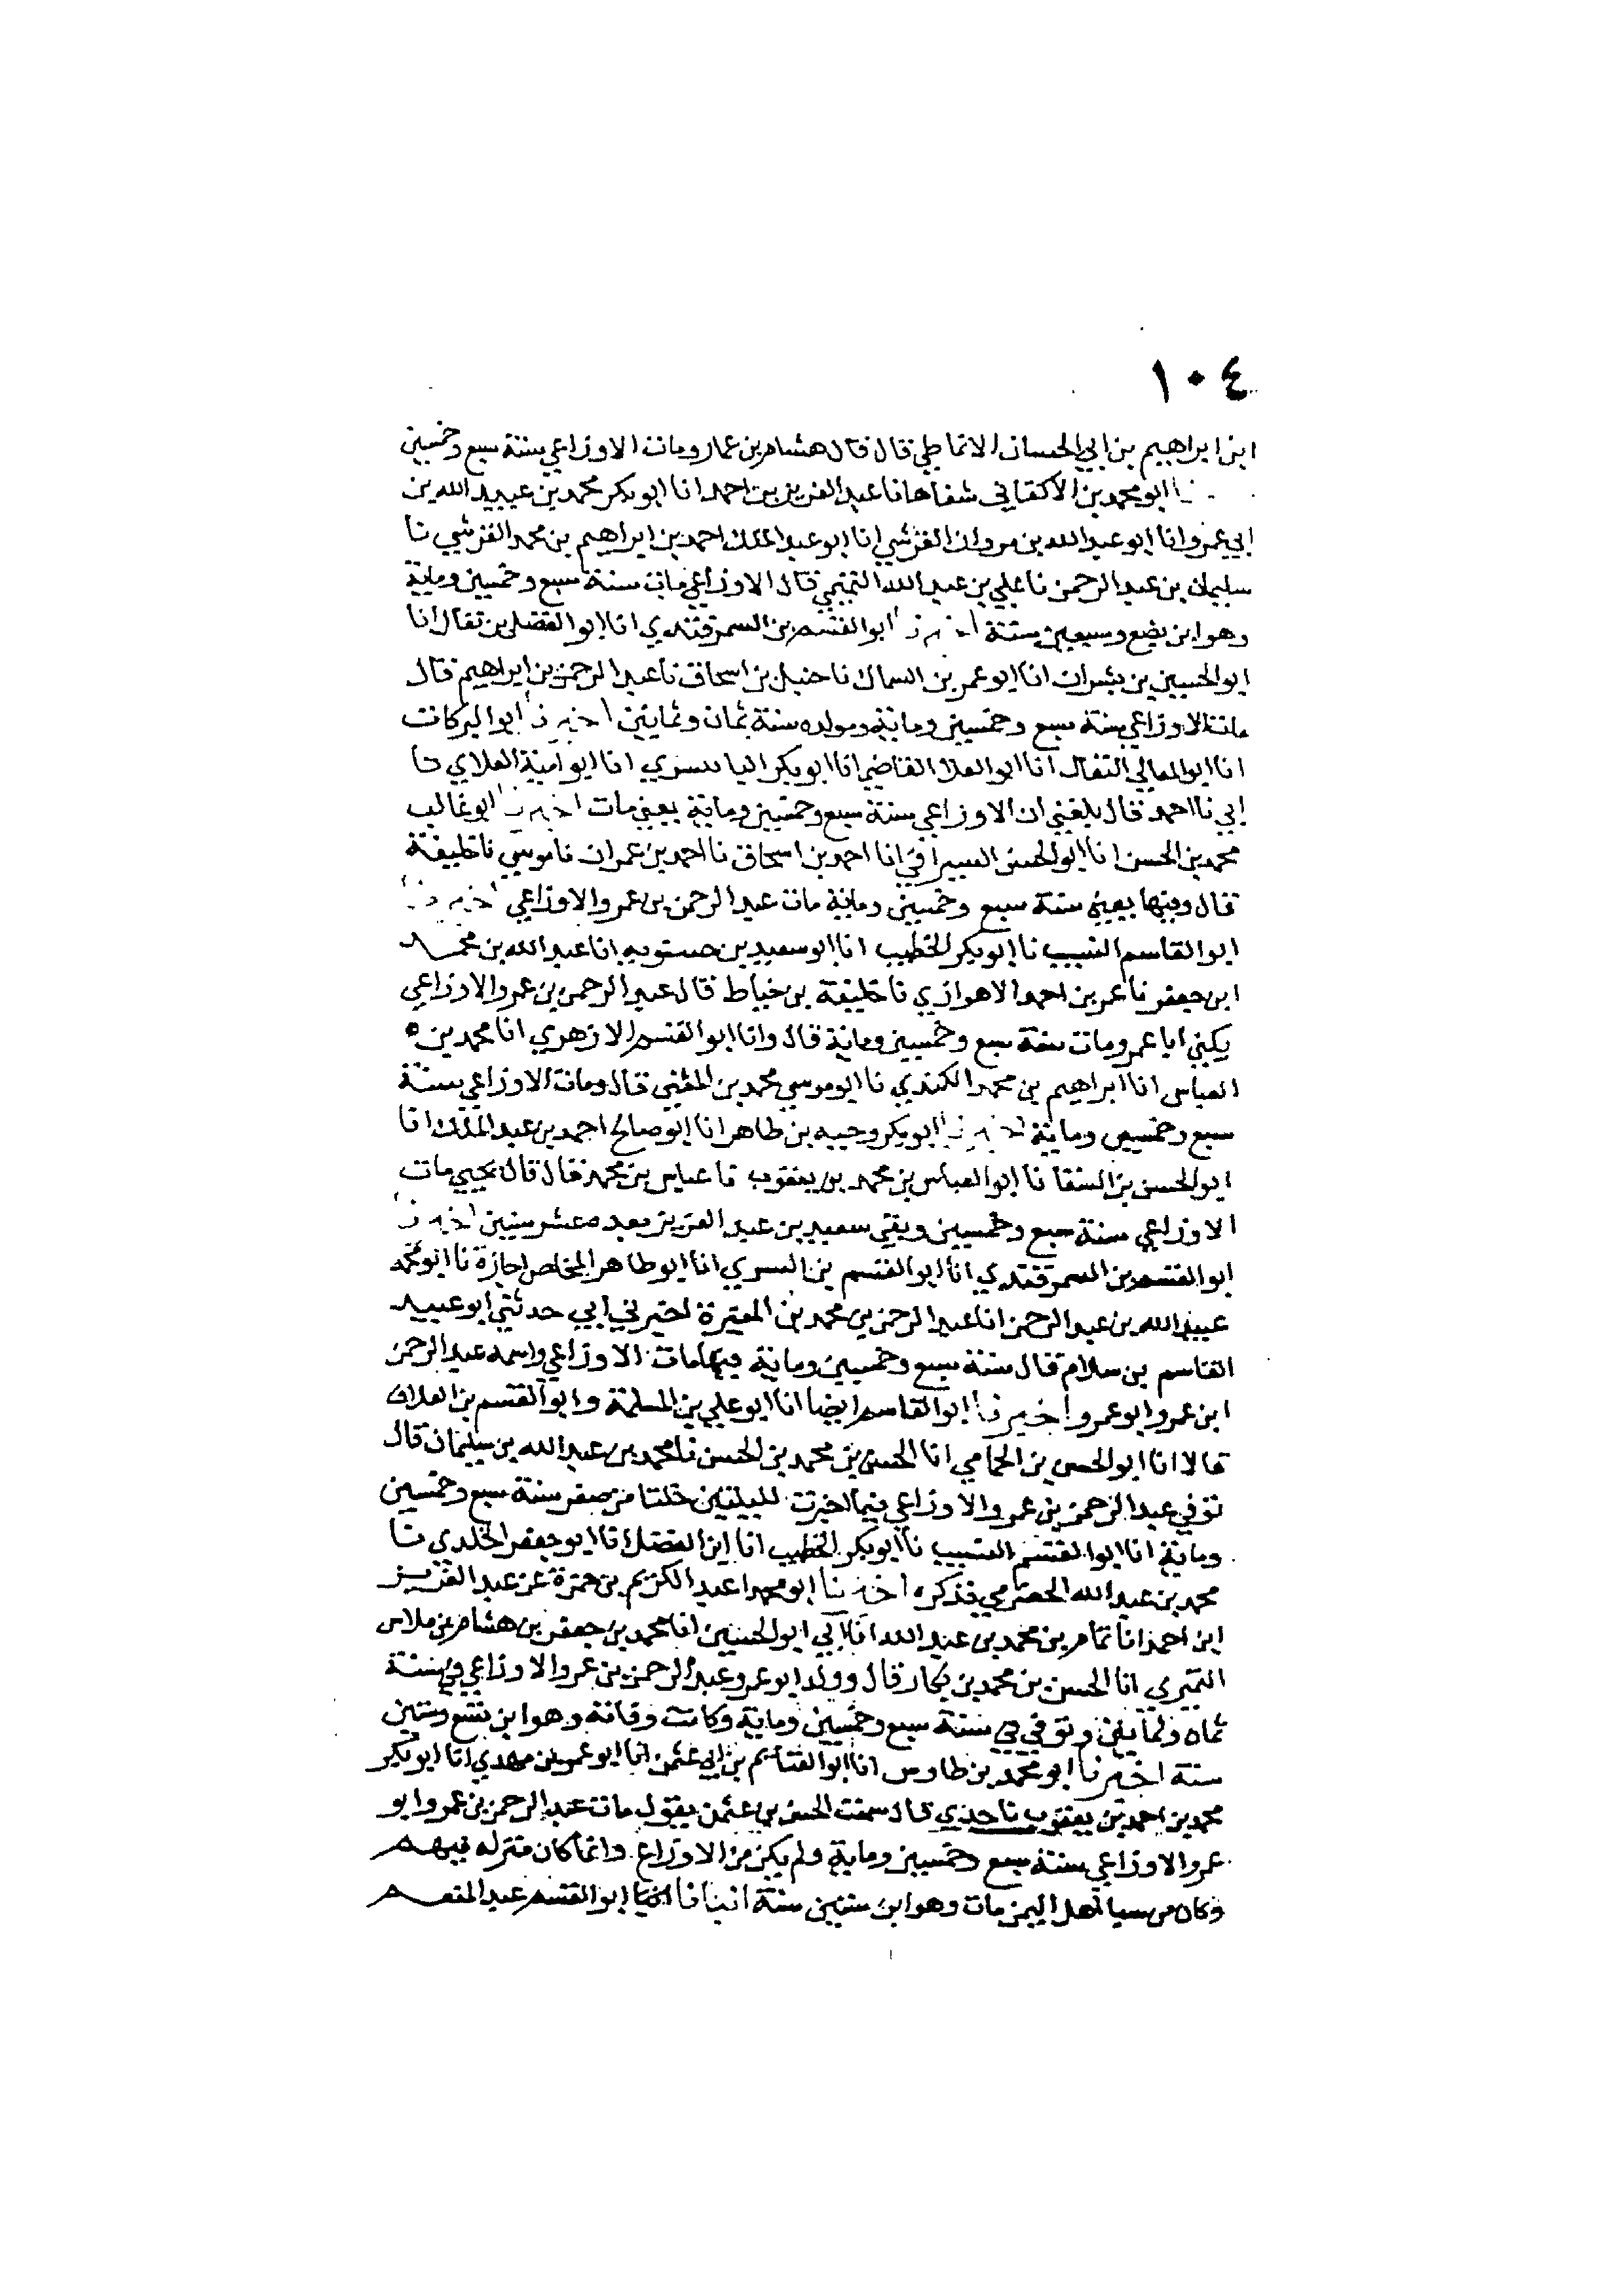 ١٠٤
ابن ابراهيم بن ابي الحسان الانماطي قال قال هشام بن عمار ومات الاوزاعي سنة سبع وخمسين
نا ابو محمد بن الاكفاني شفاها نا عبد العزيز بن احمد انا ابو بكر محمد بن عبيد الله بن
ابي عمرو انا ابو عبد الله بن مروان القرشي انا ابو عبد الملك احمد بن ابراهيم بن محمد القرشي نا
سليمان بن عبد الرحمن نا علي بن عبد الله التميمي قال الاوزاعي مات سنة سبع وخمسين وماية
وهو ابن بضع وسبعين سنة اخبرنا ابو القسم بن السمرقندي انا ابو الفضل بن تقال انا
ابو الحسين بن بشران انا ابو عمر بن السماك نا حنبل بن اسحاق نا عبد الرحمن بن ابراهيم قال
مات الاوزاعي سنة سبع وخمسين وماية ومولده سنة ثمان وثمانين اخبرنا ابو البركات
انا ابو المعالي التقال انا ابو العلا القاضي انا ابو بكر البابسري انا ابو امية العلاي نا
ابي نا احمد قال بلغني ان الاوزاعي سنة سبع وخمسين وماية يعني مات اخبرنا ابو غالب
محمد بن الحسن انا ابو الحسن السيرافي انا احمد بن اسحاق نا احمد بن عمران نا موسي نا خليفة
قال وفيها يعني سنة سبع وخمسين وماية مات عبد الرحمن بن عمرو الاوزاعي اخبرنا
ابو القاسم النسيب نا ابو بكر الخطيب انا ابو سعيد بن حسنويه انا عبد الله بن محمد
ابن جعفر نا عمر بن احمد الاهوازي نا خليفة بن خياط قال عبد الرحمن بن عمرو الاوزاعي
يكني ابا عمرو مات سنة سبع وخمسين وماية قال وانا ابو القسم الازهري انا محمد بن
العباس انا ابراهيم بن محمد الكندي نا ابو موسي محمد بن المثني قال ومات الاوزاعي سنة
سبع وخمسين وماية اخبرنا ابو بكر وجيه بن طاهر انا ابو صالح احمد بن عبد الملك انا
ابو الحسن بن السقا نا ابو العباس بن محمد بن يعقوب نا عباس بن محمد قال قال يحيي مات
الاوزاعي سنة سبع وخمسين وبقي سعيد بن عبد العزيز بعده عشر سنين اخبرنا
ابو القسم بن السمرقندي انا ابو القسم بن البسري انا ابو طاهر المخلص اجازة نا ابو محمد
عبيد الله بن عبد الرحمن انا عبد الرحمن بن محمد بن المغيرة اخبرني ابي حدثني ابو عبيد
القاسم بن سلام قال سنة سبع وخمسين وماية فيها مات الاوزاعي واسمه عبد الرحمن
ابن عمرو ابو عمرو اخبرنا ابو القاسم ايضا انا ابو علي بن المسلمة وابو القسم بن العلاف
قالا انا ابو الحسن بن الحمامي انا الحسن بن محمد بن الحسن نا محمد بن عبد الله بن سليمان قال
توفي عبد الرحمن بن عمرو الاوزاعي فيما اخبرت لليلتين خلتا من صفر سنة سبع وخمسين
وماية انا ابو القسم النسيب نا ابو بكر الخطيب انا ابن الفضل انا ابو جعفر الخلدي نا
محمد بن عبد الله الحضرمي فذكره اخبرنا ابو محمد عبد الكريم بن حمزة عن عبد العزيز
ابن احمد انا تمام بن محمد بن عبد الله انا ابي ابو الحسين انا محمد بن جعفر بن هشام بن ملاس
النميري انا الحسن بن محمد بن بكار قال وولد ابو عمرو عبد الرحمن بن عمرو الاوزاعي في سنة
ثمان وثمانين وتوفي في سنة سبع وخمسين وماية وكانت وفاته وهو ابن تسع وستين
سنة اخبرنا ابو محمد بن طاوس انا ابو القاسم بن ابي عثمن انا ابو عمر بن مهدي انا ابو بكر
محمد بن احمد بن يعقوب نا جدي قال سمعت الحسن بن عثمن يقول مات عبد الرحمن بن عمرو ابو
عمرو الاوزاعي سنة سبع وخمسين وماية ولم يكن من الاوزاع وانما كان منزله فيهم
وكان من سبا اهل اليمن مات وهو ابن ستين سنة انبانا ابو القسم عبد المنعم